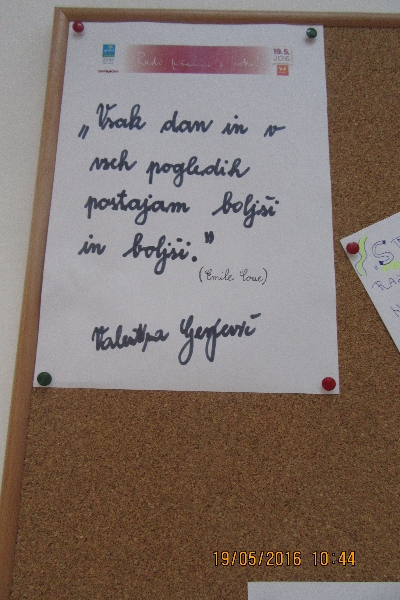 Radi pišemo z roko
19.5.
2016
„Vsak dan in v
vseh pogledih
postajam boljši
in boljši."
(Emile Coue)
Valentina
19/05/2016 10:44